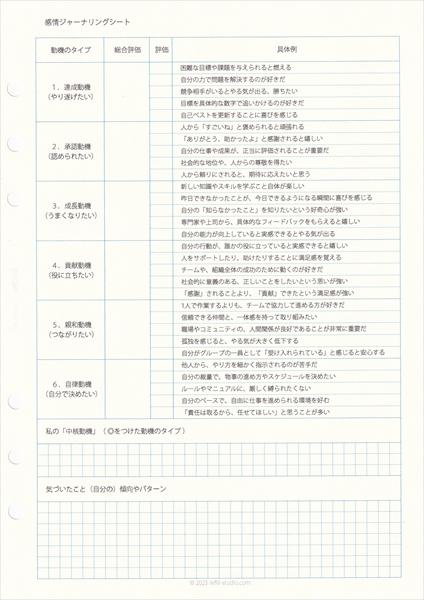 感情ジャーナリングシート
動機のタイプ 総合評価 評価 具体例
1．達成動機
（やり遂げたい）
困難な目標や課題を与えられると燃える
自分の力で問題を解決するのが好きだ
競争相手がいるとやる気が出る、勝ちたい
目標を具体的な数字で追いかけるのが好きだ
自己ベストを更新することに喜びを感じる
2．承認動機
（認められたい）
人から「すごいね」と褒められると頑張れる
「ありがとう、助かったよ」と感謝されると嬉しい
自分の仕事や成果が、正当に評価されることが重要だ
社会的な地位や、人からの尊敬を得たい
人から頼りにされると、期待に応えたいと思う
3．成長動機
（うまくなりたい）
新しい知識やスキルを学ぶこと自体が楽しい
昨日できなかったことが、今日できるようになる瞬間に喜びを感じる
自分の「知らなかったこと」を知りたいという好奇心が強い
専門家や上司から、具体的なフィードバックをもらえると嬉しい
自分の能力が向上していると実感できるとやる気が出る
4．貢献動機
（役に立ちたい）
自分の行動が、誰かの役に立っていると実感できると嬉しい
人をサポートしたり、助けたりすることに満足感を覚える
チームや、組織全体の成功のために動くのが好きだ
社会的に意義のある、正しいことをしたいという思いが強い
「感謝」されることより、「貢献」できたという満足感が強い
5．親和動機
（つながりたい）
1人で作業するよりも、チームで協力して進める方が好きだ
信頼できる仲間と、一体感を持って取り組みたい
職場やコミュニティの、人間関係が良好であることが非常に重要だ
孤独を感じると、やる気が大きく低下する
自分がグループの一員として「受け入れられている」と感じると安心する
6．自律動機
（自分で決めたい）
他人から、やり方を細かく指示されるのが苦手だ
自分の裁量で、物事の進め方やスケジュールを決めたい
ルールやマニュアルに、厳しく縛られたくない
自分のペースで、自由に仕事を進められる環境を好む
「責任は取るから、任せてほしい」と思うことが多い
私の「中核動機」（◎をつけた動機のタイプ）
気づいたこと（自分の）傾向やパターン
© 2025 refill-studio.com